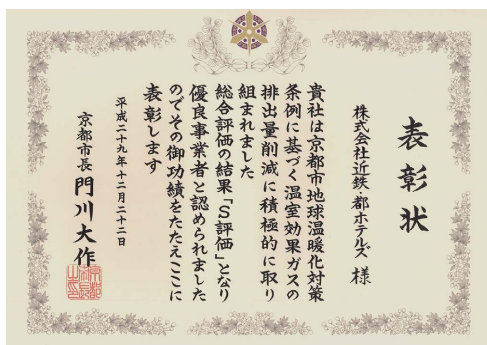 表彰状
株式会社近鉄・都ホテルズ 様
貴社は京都市地球温暖化対策
条例に基づく温室効果ガスの
排出量削減に積極的に取り
組まれました
総合評価の結果「S評価」となり
優良事業者と認められました
のでその御功績をたたえここに
表彰します
平成二十九年十二月二十二日
京都市長 門川大作